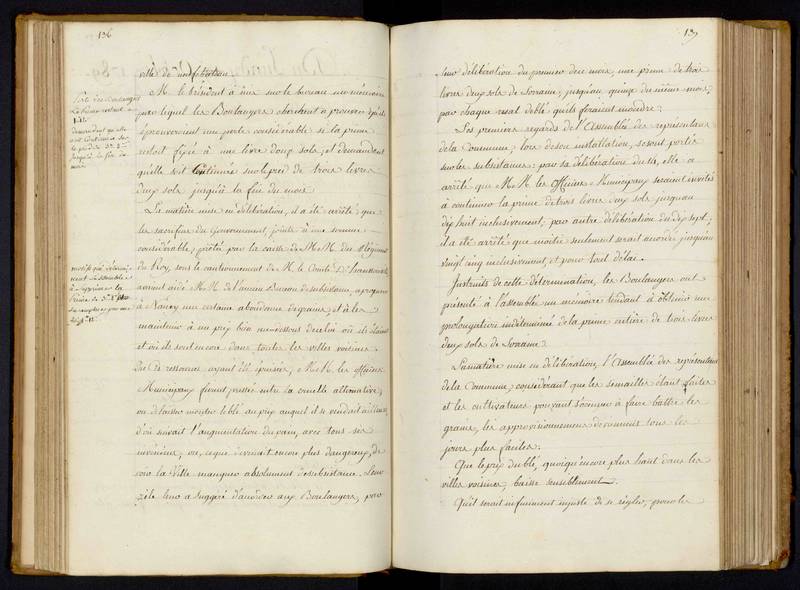 136
ville de
M. le Président a mis sur le bureau un mémoire
par lequel les Boulangers cherchent à prouver qu'ils
éprouveroient une perte considérable si la prime
restoit fixée à une livre douze sols, et demandent
qu'elle soit Continuée sur le pied de trois livres
deux sols jusqu'à la fin du mois
La matière mise en délibération, il a été arrêté que
les sacrifices du Gouvernement, joints à une somme
considérable, prêtée par la caisse de M.M. du Régiment
du Roy, sous le cautionnement de M. le Comte
avoient aidé M.M. de l'ancien Bureau de subsistance, à procurer
à Nancy une certaine abondance de grains, et à les
maintenir à un prix bien au-dessous de celui où ils étoient
et où ils sont encore dans toutes les villes voisines.
Que ces ressources ayant été épuisées, M.M. les Officiers
Municipaux furent pressés entre la cruelle alternative,
ou de laisser monter le blé au prix auquel il se vendoit ailleurs,
d'où suivoit l'augmentation du pain, avec tous ses
inconvéniens, ou, ce qui devenoit encore plus dangereux, de
voir la Ville manquer absolument de subsistance. Leur
zèle leur a suggéré d'accorder aux Boulangers, par
Perte des Boulangers
La Prime restant à
Demandent qu'elle
soit Continuée sur
le pied de 3.
jusqu'à la fin du
mois
motifs qui déterminent
l'assemblée
à supprimer la
Prime de 3.
137
leur délibération du premier de ce mois, une prime de trois
livres deux sols de Lorraine, jusqu'au quinze du même mois,
par chaque resal de blé qu'ils feroient moudre;
Les premiers regards de l'Assemblée des représentans
de la Commune, lors de son installation, se sont portés
sur les subsistances; par sa délibération du six, elle a
arrêté que M.M. les Officiers Municipaux seroient invités
à continuer la prime de trois livres deux sols jusqu'au
dix huit inclusivement; par autre délibération du dix sept,
il a été arrêté que moitié seulement seroit accordée jusqu'au
vingt cinq inclusivement, et pour tout délai.
Instruits de cette détermination, les Boulangers ont
présenté à l'assemblée un mémoire tendant à obtenir une
prolongation indéterminée de la prime entière de trois livres
deux sols de Lorraine.
La matière mise en délibération, l'Assemblée des représentans
de la Commune, considérant que les semailles étant faites
et les cultivateurs pouvant s'occuper à faire battre les
grains, les approvisionnemens deviennent tous les
jours plus faciles.
Que le prix du blé, quoiqu'encore plus haut dans les
villes voisines, baisse sensiblement.
Qu'il seroit infiniment injuste de se régler, pour les